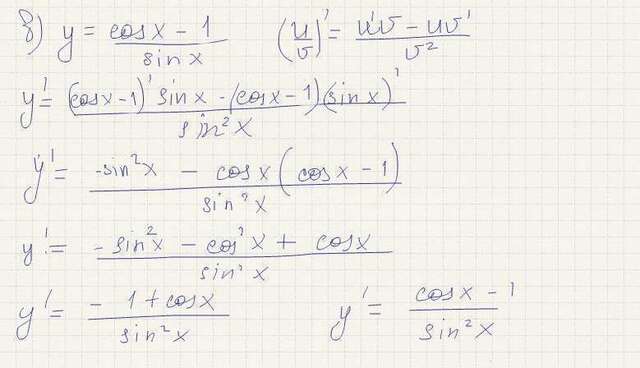 в) y = (cosx - 1)/(sinx)   (u/v)' = (u'v - uv')/v²
y' = ((cosx-1)' sinx - (cosx-1)(sinx)')/(sin²x)
y' = (-sin²x - cosx(cosx - 1))/(sin²x)
y' = (-sin²x - cos²x + cosx)/(sin²x)
y' = (-1 + cosx)/(sin²x)   y' = (cosx - 1)/(sin²x)